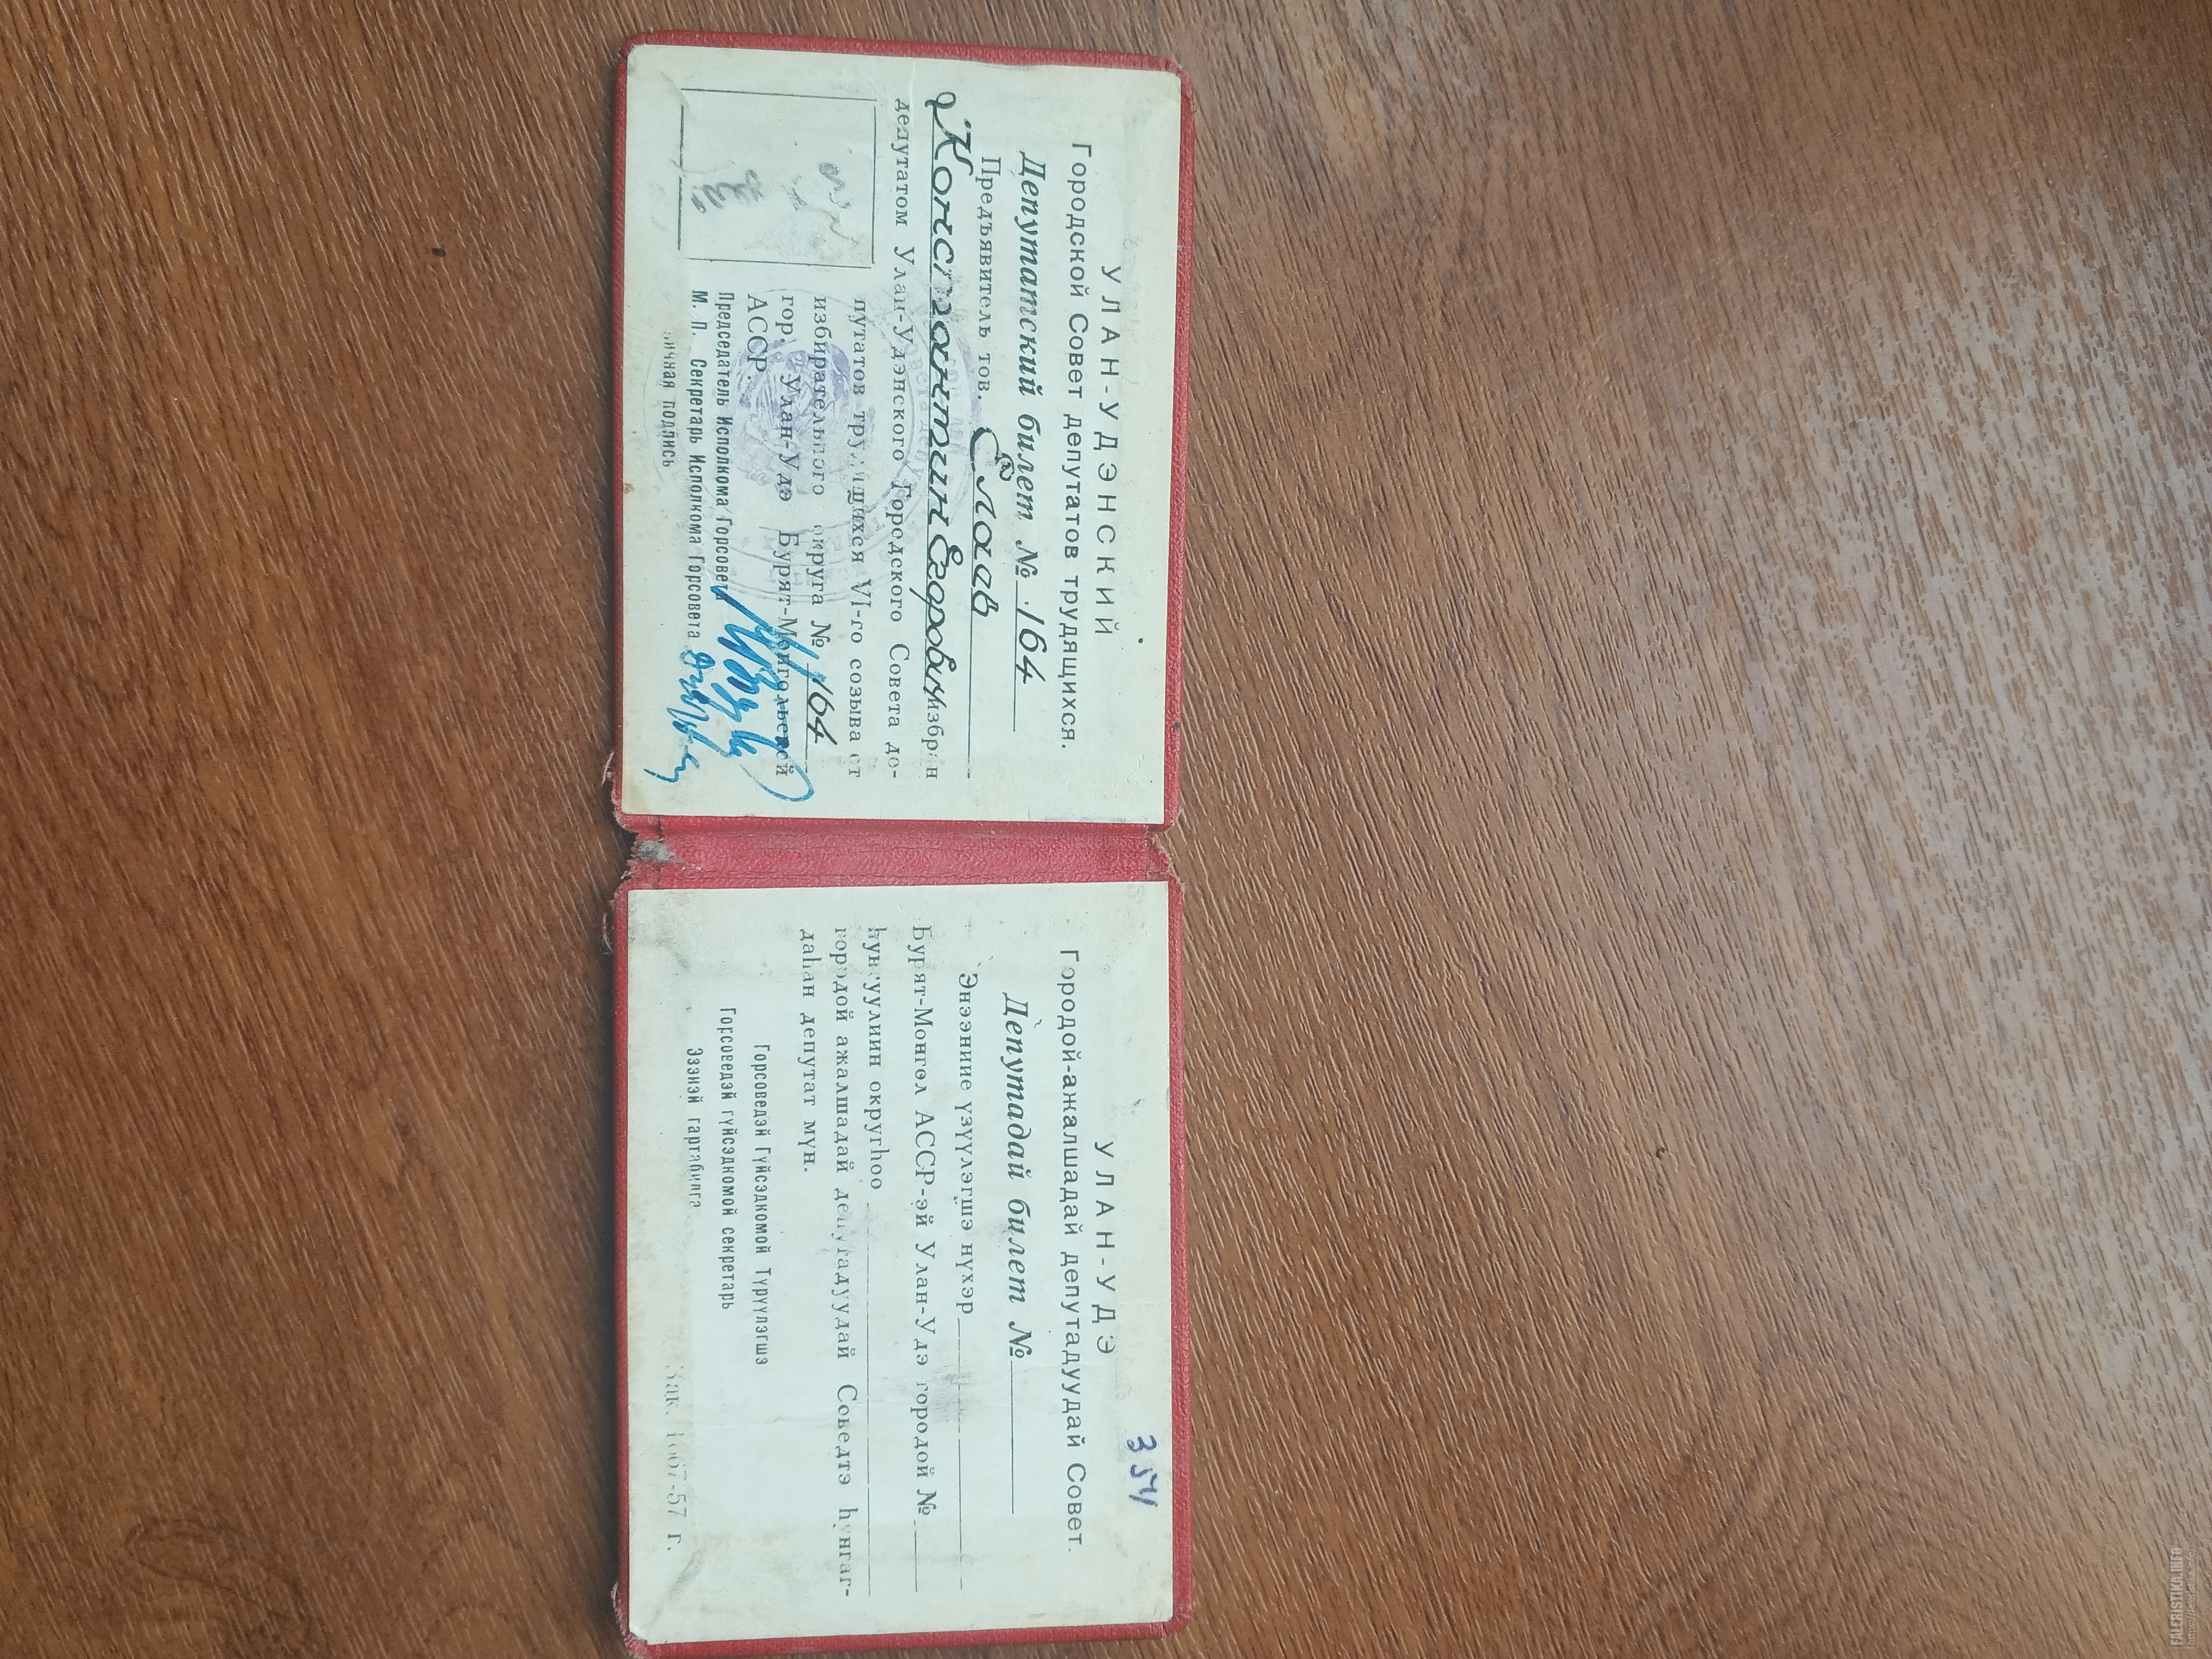 УЛАН-УДЭНСКИЙ
Городской Совет депутатов трудящихся.
Депутатский билет № 164
Предъявитель тов.
Константин Егорович избран
депутатом Улан-Удэнского Городского Совета де-
путатов трудящихся VI-го созыва от
избирательного округа № 164
гор. Улан-Удэ Бурят-Монгольской
АССР.
Председатель Исполкома Горсовета
М. П. Секретарь Исполкома Горсовета
личная подпись
354
УЛАН-УДЭ
Городой-ажалшадай депутадуудай Совет.
Депутадай билет №
Энээниие үзүүлэгшэ нүхэр
Бурят-Монгол АССР-эй Улан-Удэ городой №
һунгуулиин округһоо
городой ажалшадай депутадуудай Соведтэ һунгаг-
даһан депутат мүн.
Горсоведэй Гүйсэдкомой Түрүүлэгшэ
Горсоведэй гүйсэдкомой секретарь
Эзэнэй гартабилга
Зак. 1667-57 г.
FALERISTIKA.INFO
https://faleristika.info/